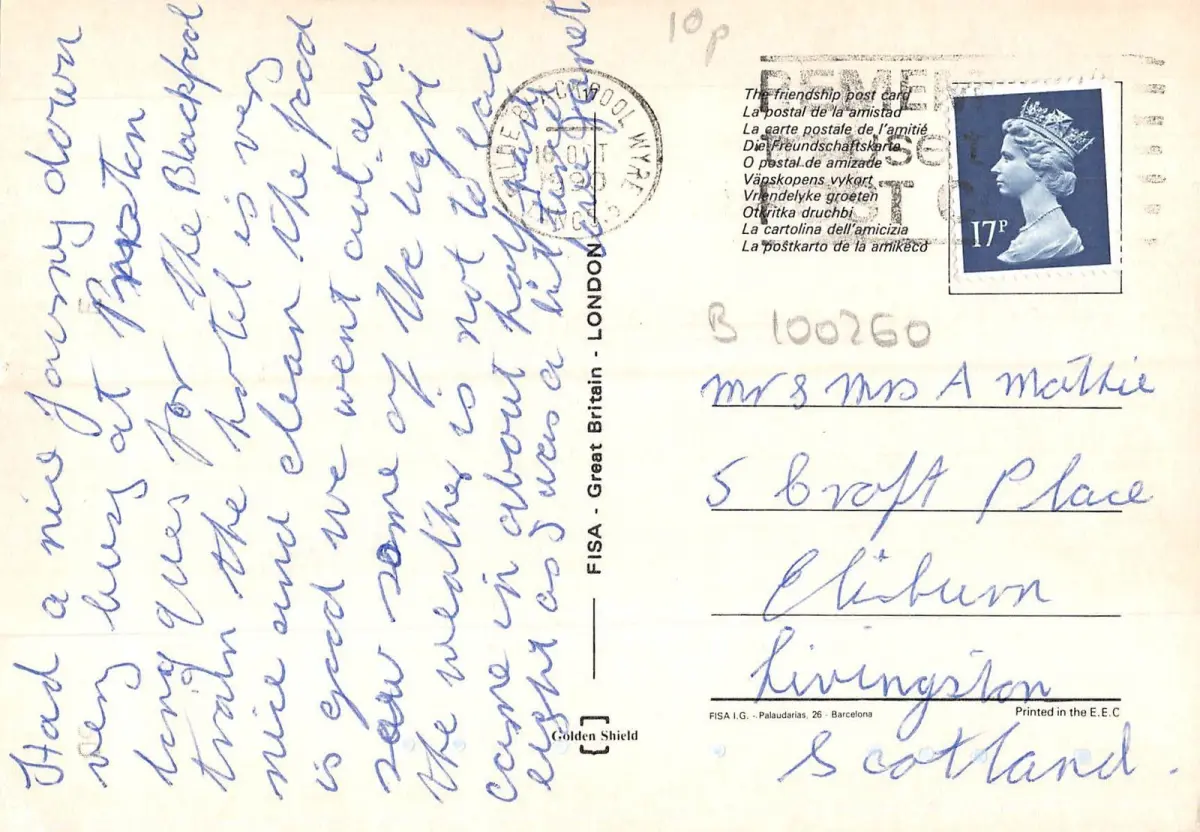 Had a nice jorney down
very busy at Preston
long ques for the Blackpool
train the hotel is very
nice and clean the food
is good we went out and
saw some of the light
the weather is not to bad
came in about half past
eight as was a bit tired
10p
BLACKPOOL WYRE
OCT
The friendship post card
La postal de la amistad
La carte postale de l'amitié
Die Freundschaftskarte
O postal de amizade
Vänskopens vykort
Vriendelyke groeten
Otkritka druchbi
La cartolina dell'amicizia
La poŝtkarto de la amikeco
17P
B 100260
Mr & Mrs A Mathie
5 Croft Place
Eliburn
Livingston
Scotland.
FISA - Great Britain - LONDON
Golden Shield
FISA I.G. - Palaudarias, 26 - Barcelona
Printed in the E.E.C